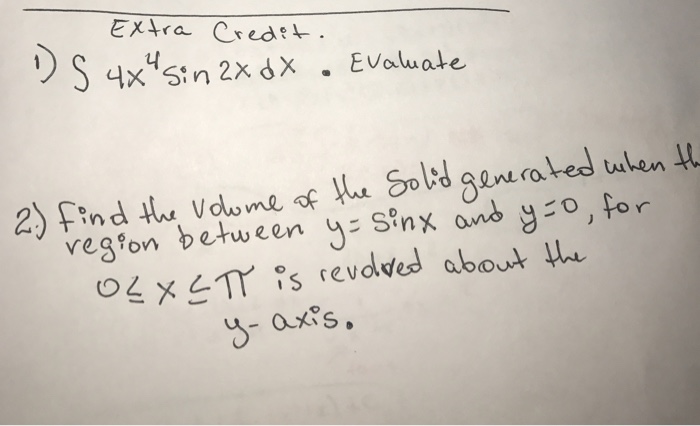 Extra Credit.
1) ∫ 4x⁴ sin 2x dx . Evaluate
2.) Find the Volume of the Solid generated when th
region between y = sinx and y=0, for
0 ≤ x ≤ π is revolved about the
y-axis.